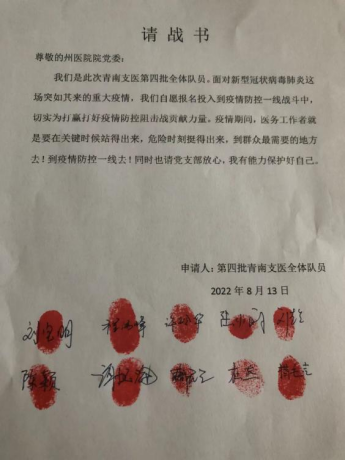 请战书
尊敬的州医院院党委：
我们是此次青南支医第四批全体队员，面对新型冠状病毒肺炎这
场突如其来的重大疫情，我们自愿报名投入到疫情防控一线战斗中，
切实为打赢打好疫情防控阻击战贡献力量，疫情期间，医务工作者就
是要在关键时候站得出来，危险时刻挺得出来，到群众最需要的地方
去！到疫情防控一线去！同时也请党支部放心，我有能力保护好自己。
申请人：第四批青南支医全体队员
2022年8月13日